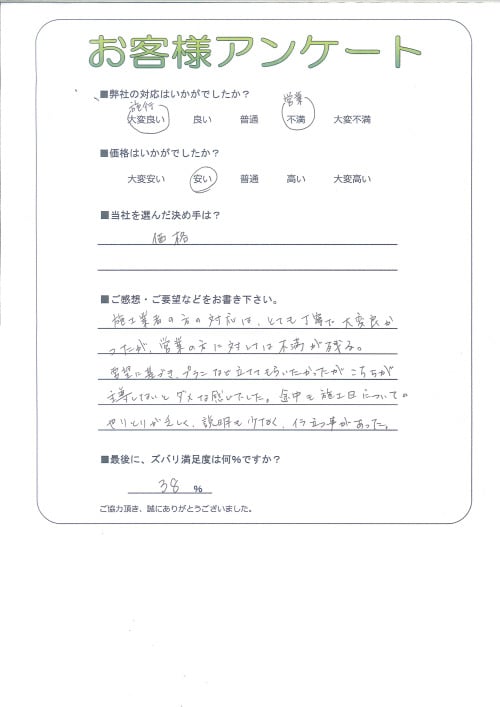 お客様アンケート
■弊社の対応はいかがでしたか？
施行 営業
大変良い 良い 普通 不満 大変不満
■価格はいかがでしたか？
大変安い 安い 普通 高い 大変高い
■当社を選んだ決め手は？
価格
■ご感想・ご要望などをお書き下さい。
施工業者の方の対応は、とても丁寧で大変良か
ったが、営業の方に対しては不満が残る。
要望に基づき、プランなど立ててもらいたかったがこちらが
主導しないとダメな感じでした。途中も施工日についての
やりとりが乏しく、説明も少なく、イラ立つ事があった。
■最後に、ズバリ満足度は何％ですか？
38 ％
ご協力頂き、誠にありがとうございました。